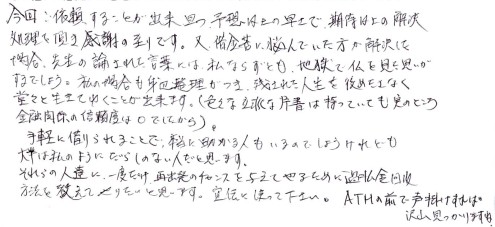 今回、依頼することが出来、且つ、予想以上の早さで、期待以上の解決
処理を頂き感謝の至りです。又、借金苦に悩んでいた方が解決した
場合、先生の諭された言葉には、私ならずとも、地獄で仏を見た思いが
するでしょう。私の場合も年辺整理がつき、残された人生を改めたなく
堂々と生きてゆくことが出来ます。(色々な立派な肩書は持っていても見のところ
金融関係の信頼度は0でしたから)。
手軽に借りられることで、本当に助かる人もいるのでしょうけれども
大半は私のようにだらしのない人だと思います。
それらの人達に、一度だけ、再出発のチャンスを与えてやるために過払金回収
方法を教えてやりたいと思います。宣伝に使って下さい。ATMの前で声掛けすれば。
沢山見つかりますね